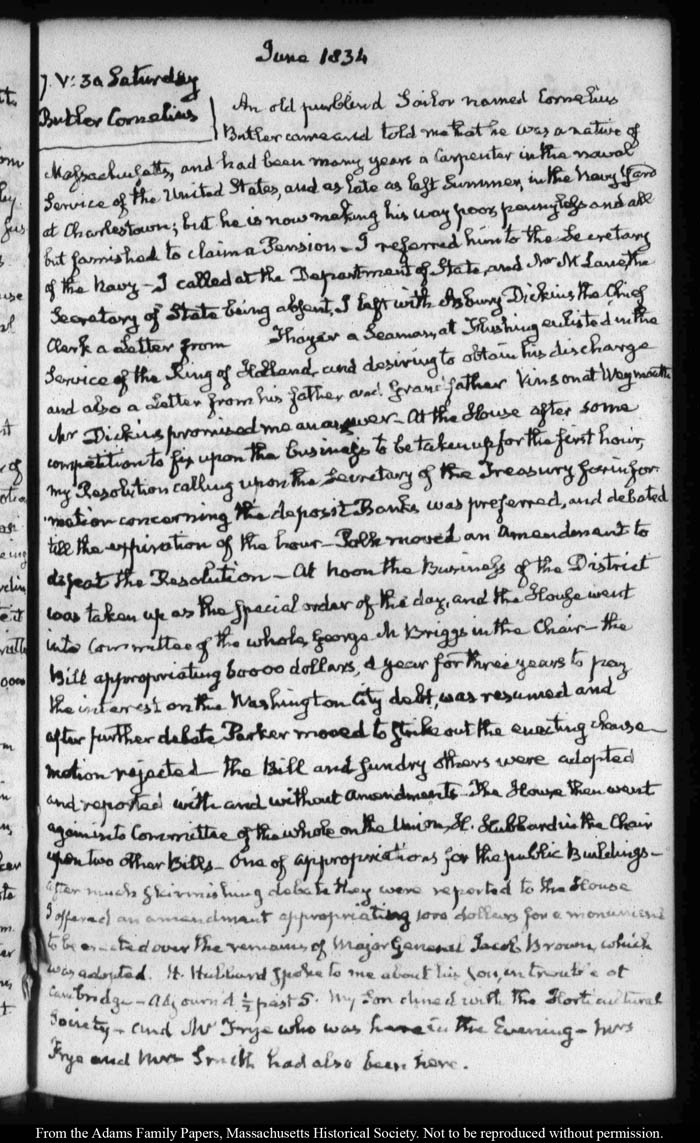 June 1834
7. V: 30 Saturday
Butler Cornelius
An old purblind Sailor named Cornelius
Butler came and told me that he was a native of
Massachusetts, and had been many years a Carpenter in the naval
Service of the United States, and as late as last Summer, in the Navy Yard
at Charlestown; but he is now making his way poor, pennyless and all
but famished to claim a Pension – I referred him to the Secretary
of the Navy – I called at the Department of State, and Mr McLane, the
Secretary of State being absent, I left with Asbury Dickins the Chief
Clerk a Letter from Thayer a Seaman, at Flushing enlisted in the
Service of the King of Holland, and desiring to obtain his discharge
and also a Letter from his father and Grandfather Vinson at Weymouth
Mr Dickins promised me an answer – At the House after some
competition to fix upon the business to be taken up for the first hour,
my Resolution calling upon the Secretary of the Treasury for infor
mation concerning the deposit Banks was preferred, and debated
till the expiration of the hour – Polk moved an amendment to
defeat the Resolution – At noon the Business of the District
was taken up as the special order of the day, and the House went
into Committee of the whole, George N Briggs in the Chair – the
Bill appropriating 60000 dollars, a year for three years to pay
the interest on the Washington City debt, was resumed and
after further debate Parker moved to strike out the enacting clause –
motion rejected – the Bill and sundry others were adopted
and reported with and without amendments – The House then went
again into Committee of the whole on the Union, H. Hubbard in the Chair
upon two other Bills – One of appropriations for the public Buildings –
after much skirmishing debate they were reported to the House
I offered an amendment appropriating 1000 dollars for a monument
to be erected over the remains of Major General Jacob Brown, which
was adopted. H. Hubbard spoke to me about his son, in trouble at
Cambridge – Adjourn'd ½ past 5. My Son dined with the Horticultural
Society – and Mr Frye who was here in the Evening – Mrs
Frye and Mrs Smith had also been here.
From the Adams Family Papers, Massachusetts Historical Society. Not to be reproduced without permission.